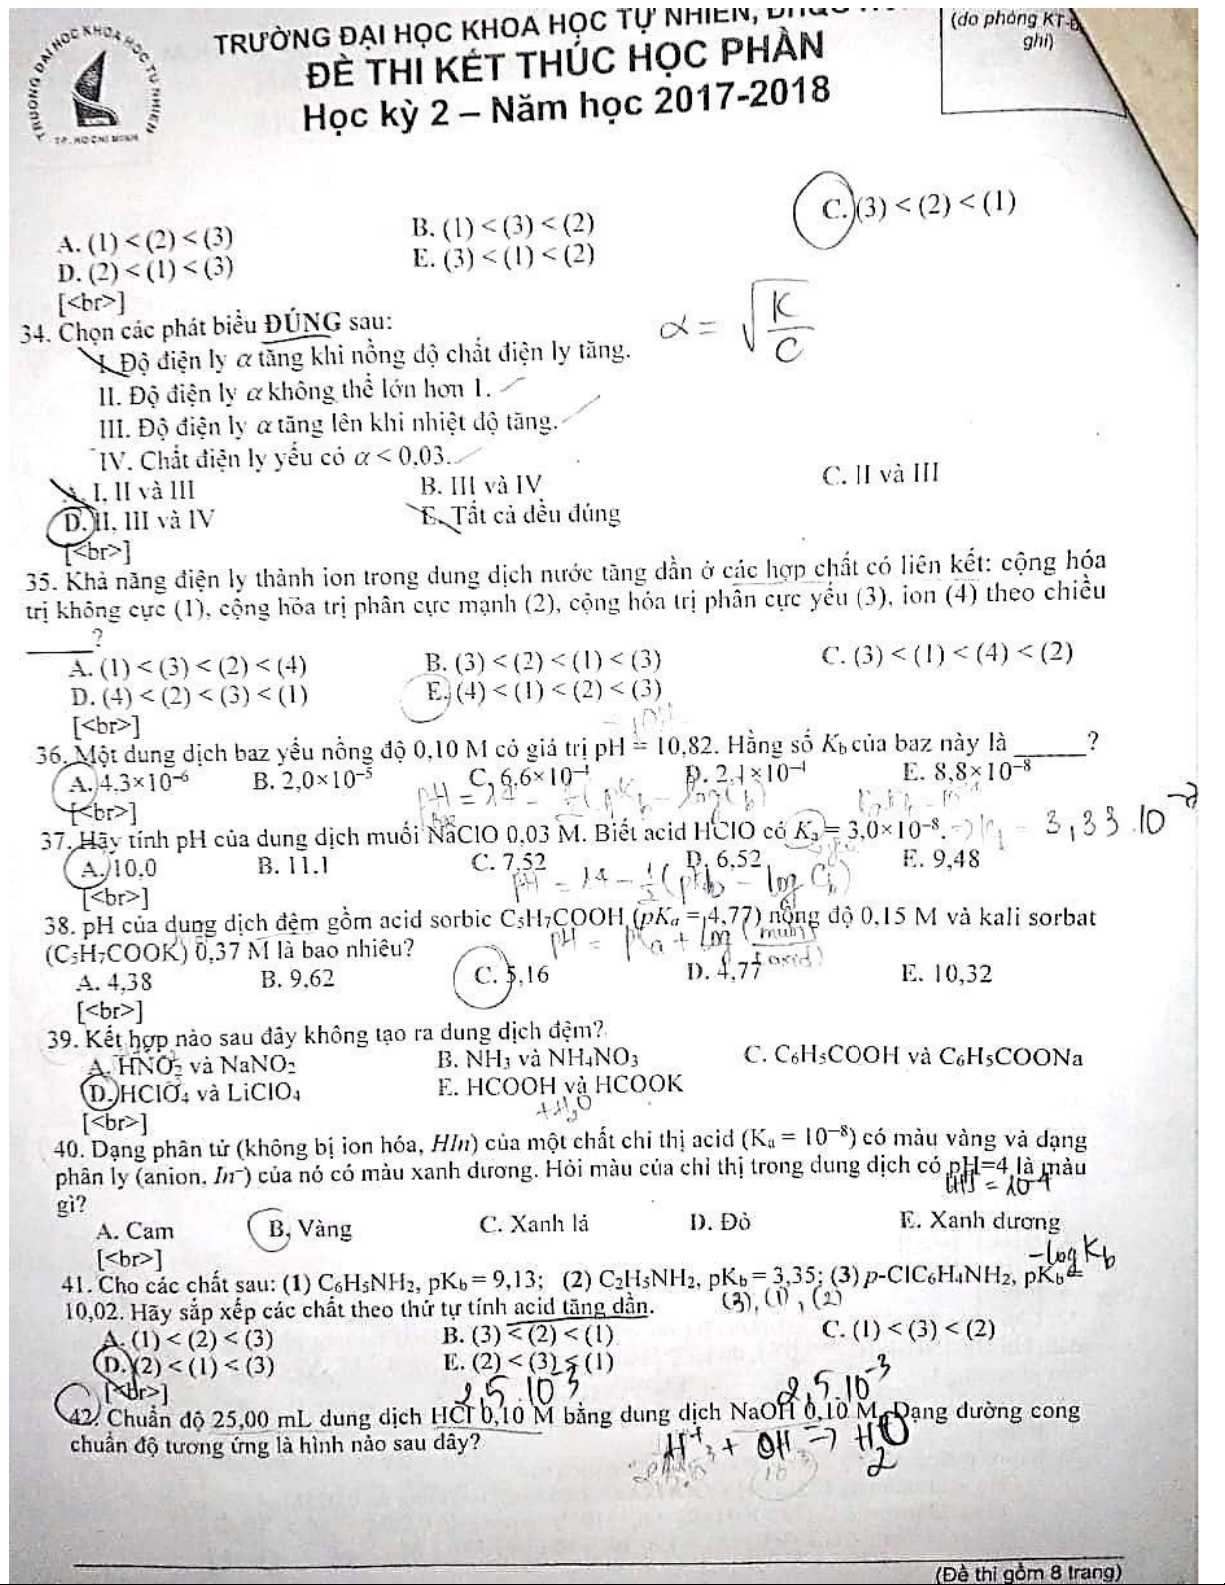 TRƯỜNG ĐẠI HỌC KHOA HỌC TỰ NHIÊN
TP. HỒ CHÍ MINH
TRƯỜNG ĐẠI HỌC KHOA HỌC TỰ NHIÊN,
ĐỀ THI KẾT THÚC HỌC PHẦN
Học kỳ 2 – Năm học 2017-2018
(do phòng KT-Đ
ghi)
A. (1) < (2) < (3) B. (1) < (3) < (2) C. (3) < (2) < (1)
D. (2) < (1) < (3) E. (3) < (1) < (2)
[<br>]
34. Chọn các phát biểu ĐÚNG sau:
α = √(K/C)
I. Độ điện ly α tăng khi nồng độ chất điện ly tăng.
II. Độ điện ly α không thể lớn hơn 1.
III. Độ điện ly α tăng lên khi nhiệt độ tăng.
IV. Chất điện ly yếu có α < 0,03.
A. I, II và III B. III và IV C. II và III
D. II, III và IV E. Tất cả đều đúng
[<br>]
35. Khả năng điện ly thành ion trong dung dịch nước tăng dần ở các hợp chất có liên kết: cộng hóa
trị không cực (1), cộng hóa trị phân cực mạnh (2), cộng hóa trị phân cực yếu (3), ion (4) theo chiều
______?
A. (1) < (3) < (2) < (4) B. (3) < (2) < (1) < (3) C. (3) < (1) < (4) < (2)
D. (4) < (2) < (3) < (1) E. (4) < (1) < (2) < (3)
[<br>]
36. Một dung dịch baz yếu nồng độ 0,10 M có giá trị pH = 10,82. Hằng số Kb của baz này là ______?
A. 4,3×10⁻⁶ B. 2,0×10⁻⁵ C. 6,6×10⁻⁴ D. 2,1×10⁻⁴ E. 8,8×10⁻⁸
[<br>]
37. Hãy tính pH của dung dịch muối NaClO 0,03 M. Biết acid HClO có Ka = 3,0×10⁻⁸.
3,33.10⁻⁷
A. 10,0 B. 11,1 C. 7,52 D. 6,52 E. 9,48
[<br>]
pH = 14 - 1/2 (pKb - log Cb)
38. pH của dung dịch đệm gồm acid sorbic C₅H₇COOH (pKa = 4,77) nồng độ 0,15 M và kali sorbat
(C₅H₇COOK) 0,37 M là bao nhiêu?
pH = pKa + log (muối/axid)
A. 4,38 B. 9,62 C. 5,16 D. 4,77 E. 10,32
[<br>]
39. Kết hợp nào sau đây không tạo ra dung dịch đệm?
A. HNO₂ và NaNO₂ B. NH₃ và NH₄NO₃ C. C₆H₅COOH và C₆H₅COONa
D. HClO₄ và LiClO₄ E. HCOOH và HCOOK
[<br>]
+H₂O
40. Dạng phân tử (không bị ion hóa, HIn) của một chất chỉ thị acid (Ka = 10⁻⁸) có màu vàng và dạng
phân ly (anion, In⁻) của nó có màu xanh dương. Hỏi màu của chỉ thị trong dung dịch có pH=4 là màu
gì?
= 10⁻⁴
A. Cam B. Vàng C. Xanh lá D. Đỏ E. Xanh dương
[<br>]
-log Kb
41. Cho các chất sau: (1) C₆H₅NH₂, pKb = 9,13; (2) C₂H₅NH₂, pKb = 3,35; (3) p-ClC₆H₄NH₂, pKb =
10,02. Hãy sắp xếp các chất theo thứ tự tính acid tăng dần.
(3), (1), (2)
A. (1) < (2) < (3) B. (3) < (2) < (1) C. (1) < (3) < (2)
D. (2) < (1) < (3) E. (2) < (3) < (1)
[<br>]
2,5.10⁻³ 2,5.10⁻³
42. Chuẩn độ 25,00 mL dung dịch HCl 0,10 M bằng dung dịch NaOH 0,10 M. Dạng đường cong
chuẩn độ tương ứng là hình nào sau đây?
H⁺ + OH⁻ → H₂O
(Đề thi gồm 8 trang)